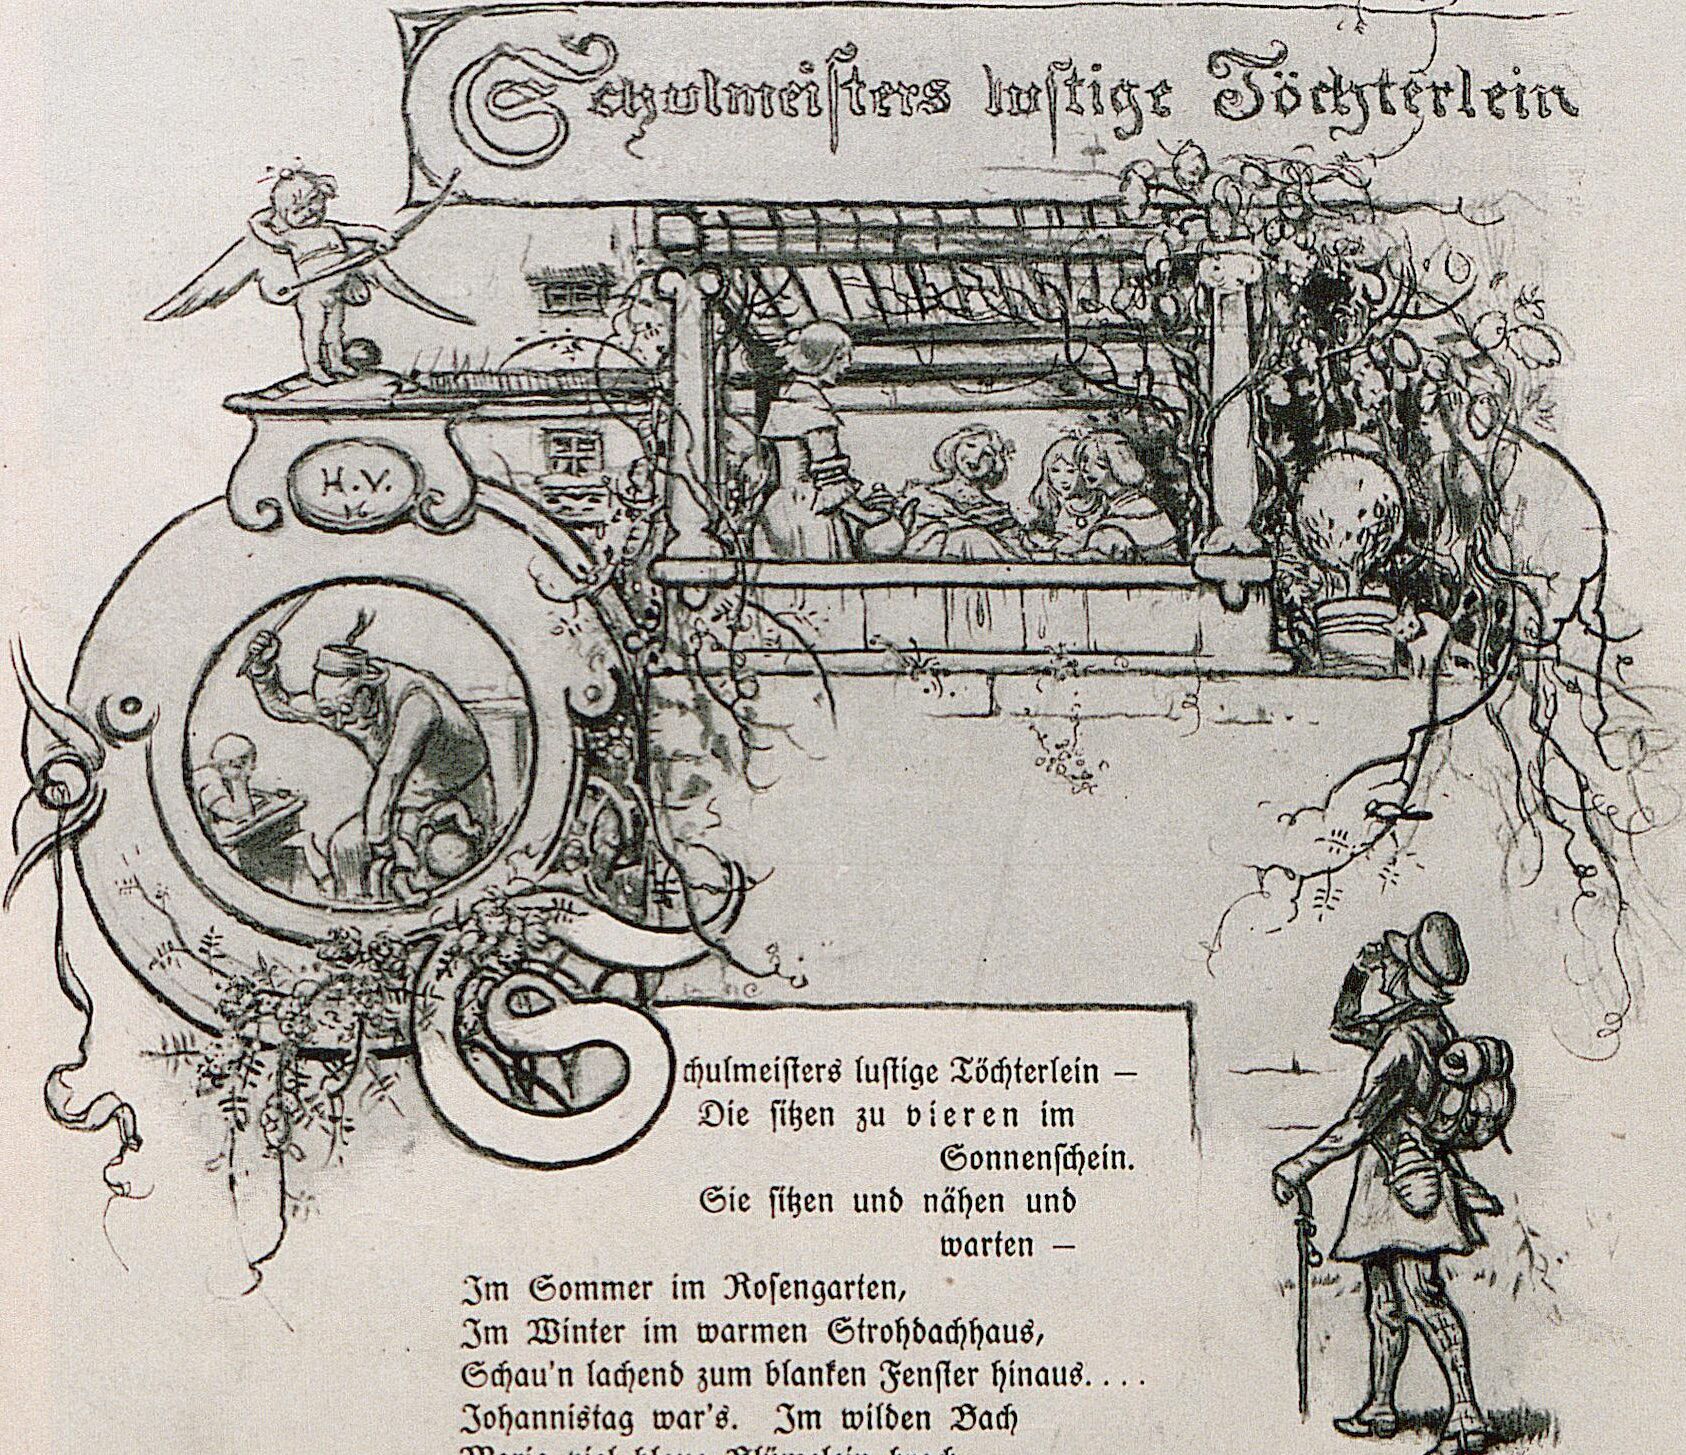 Schulmeiſters luſtige Töchterlein
H. V.
Schulmeiſters luſtige Töchterlein —
Die ſitzen zu vieren im
Sonnenſchein.
Sie ſitzen und nähen und
warten —
Im Sommer im Roſengarten,
Im Winter im warmen Strohdachhaus,
Schau'n lachend zum blanken Fenſter hinaus....
Johannistag war's. Im wilden Bach